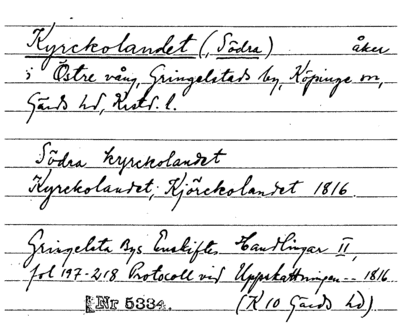 Kyrckolandet (, Södra) åker
i Östre vång, Gringelstads by, Köpinge sn,
Gärds hd, Krist. l.
Södra kyrckolandet
Kyrckolandet, Kjörckolandet 1816.
Gringelsta Bys Enskiftes Handlingar II,
fol 197-218 Protocoll vid Uppskattningen -- 1816
Nr 5334. (K 10 Gärds hd)